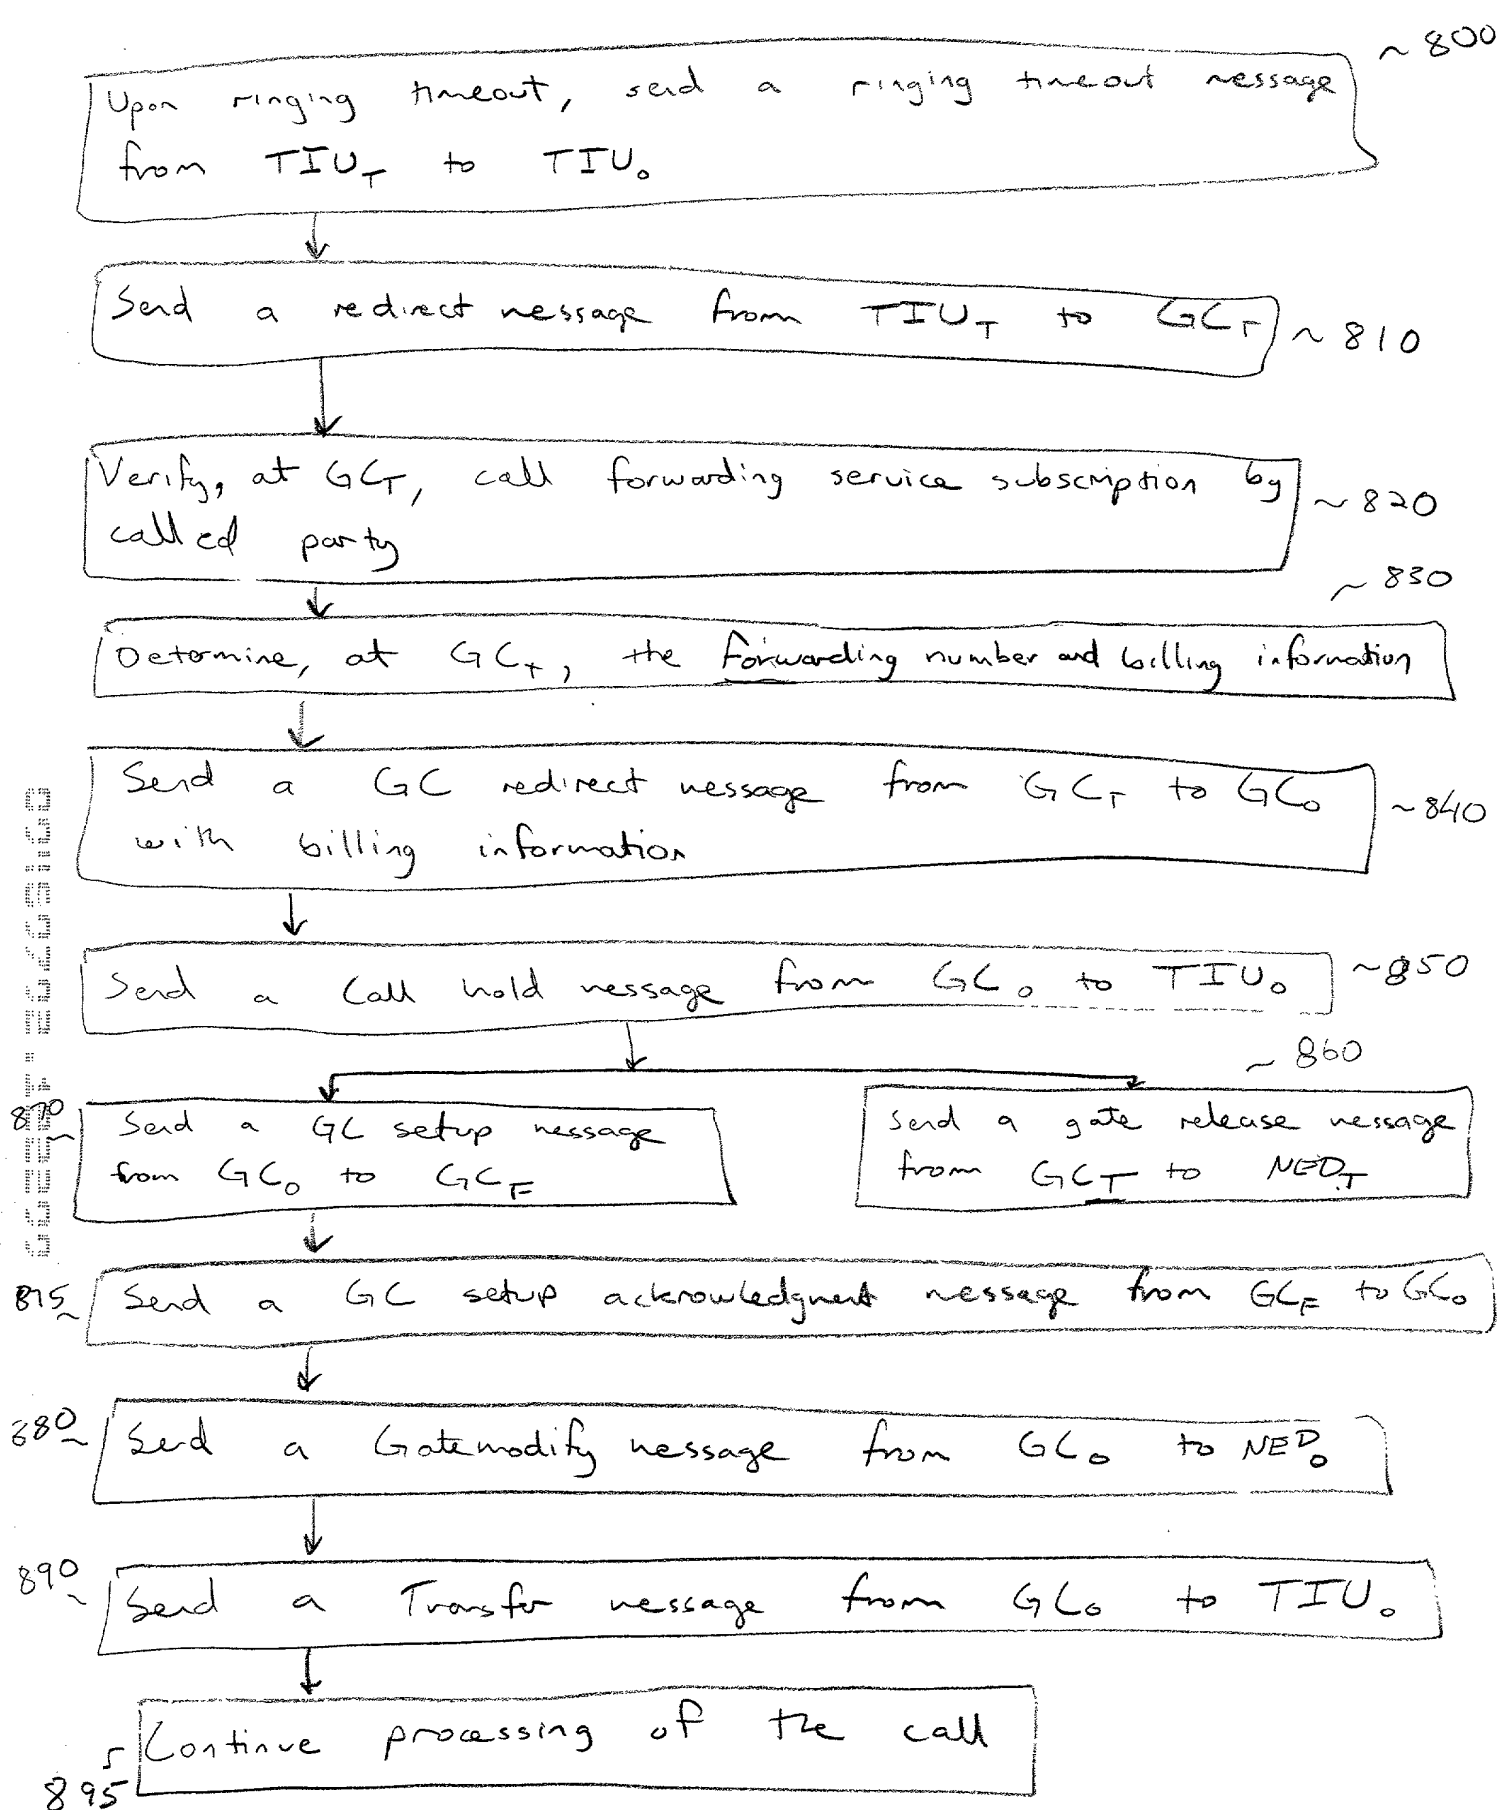 ~ 800
Upon ringing timeout, send a ringing timeout message
from TIU_T to TIU_O
Send a redirect message from TIU_T to GC_T ~ 810
Verify, at GC_T, call forwarding service subscription by
called party
~ 820
~ 830
Determine, at GC_T, the forwarding number and billing information
Send a GC redirect message from GC_T to GC_O
with billing information
~ 840
Send a Call hold message from GC_O to TIU_O ~ 850
~ 860
870 ~
Send a GC setup message
from GC_O to GC_F
Send a gate release message
from GC_T to NED_T
875 ~ Send a GC setup acknowledgment message from GC_F to GC_O
880 ~ Send a Gatemodify message from GC_O to NED_O
890 ~ Send a Transfer message from GC_O to TIU_O
Continue processing of the call
895